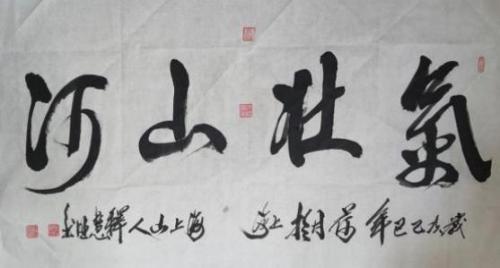 氣壯山河
歲次乙巳年荷月上海 海上山人釋慧